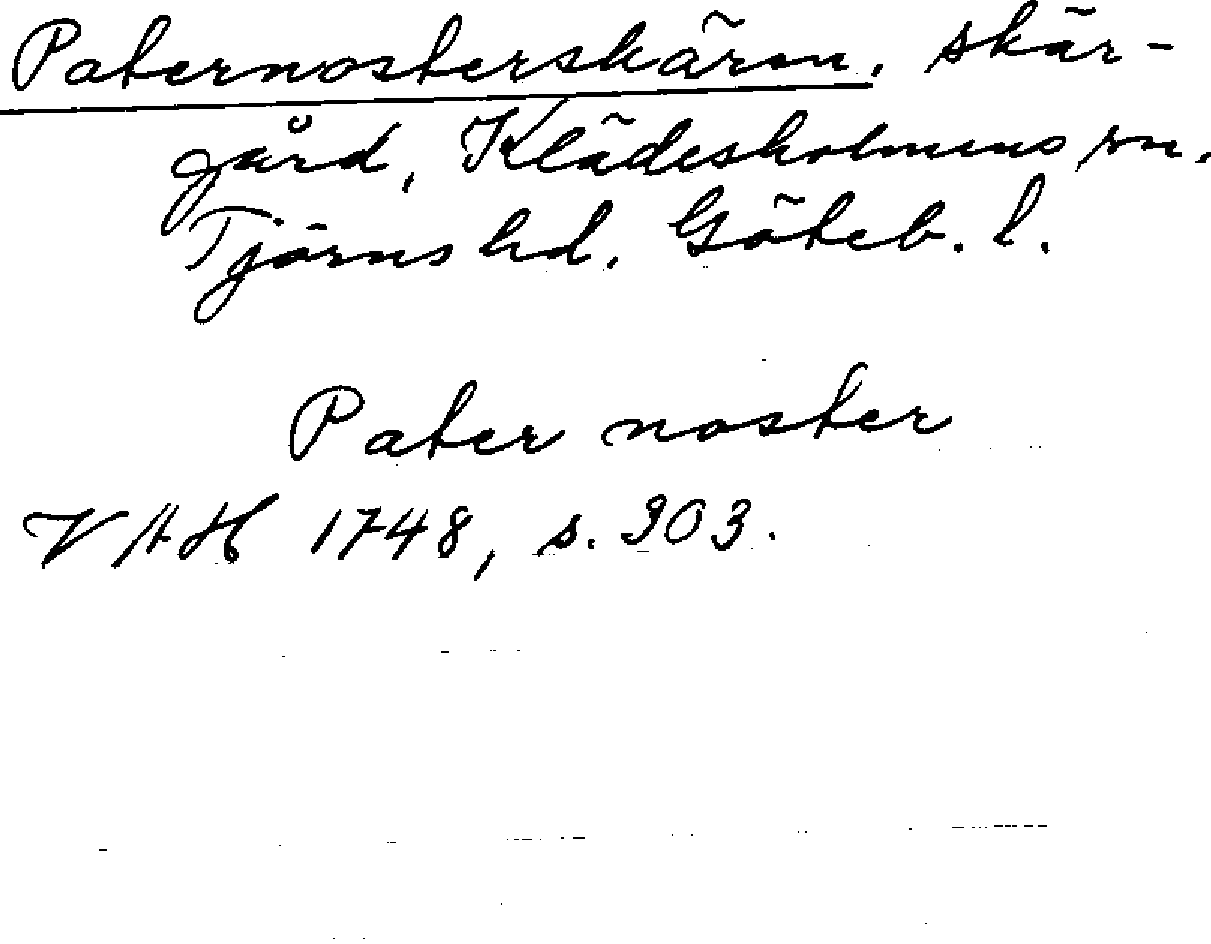 Paternosterskären, skär-
gård, Klädesholmens sn.
Tjörns hd. Göteb. l.
Pater noster
VAH 1748, s. 303.